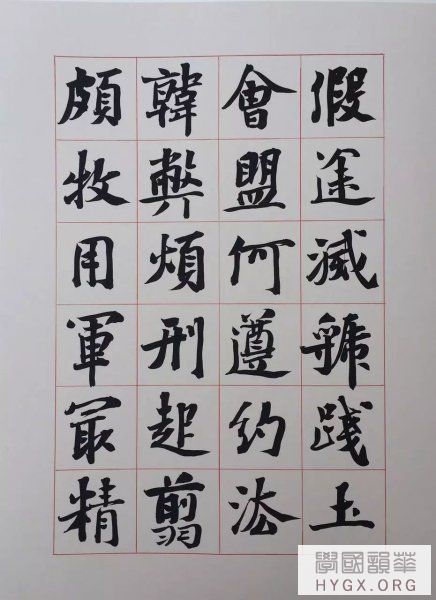 假途滅虢踐土
會盟何遵約法
韓弊煩刑起翦
頗牧用軍最精
華韻國學
HYGX.ORG